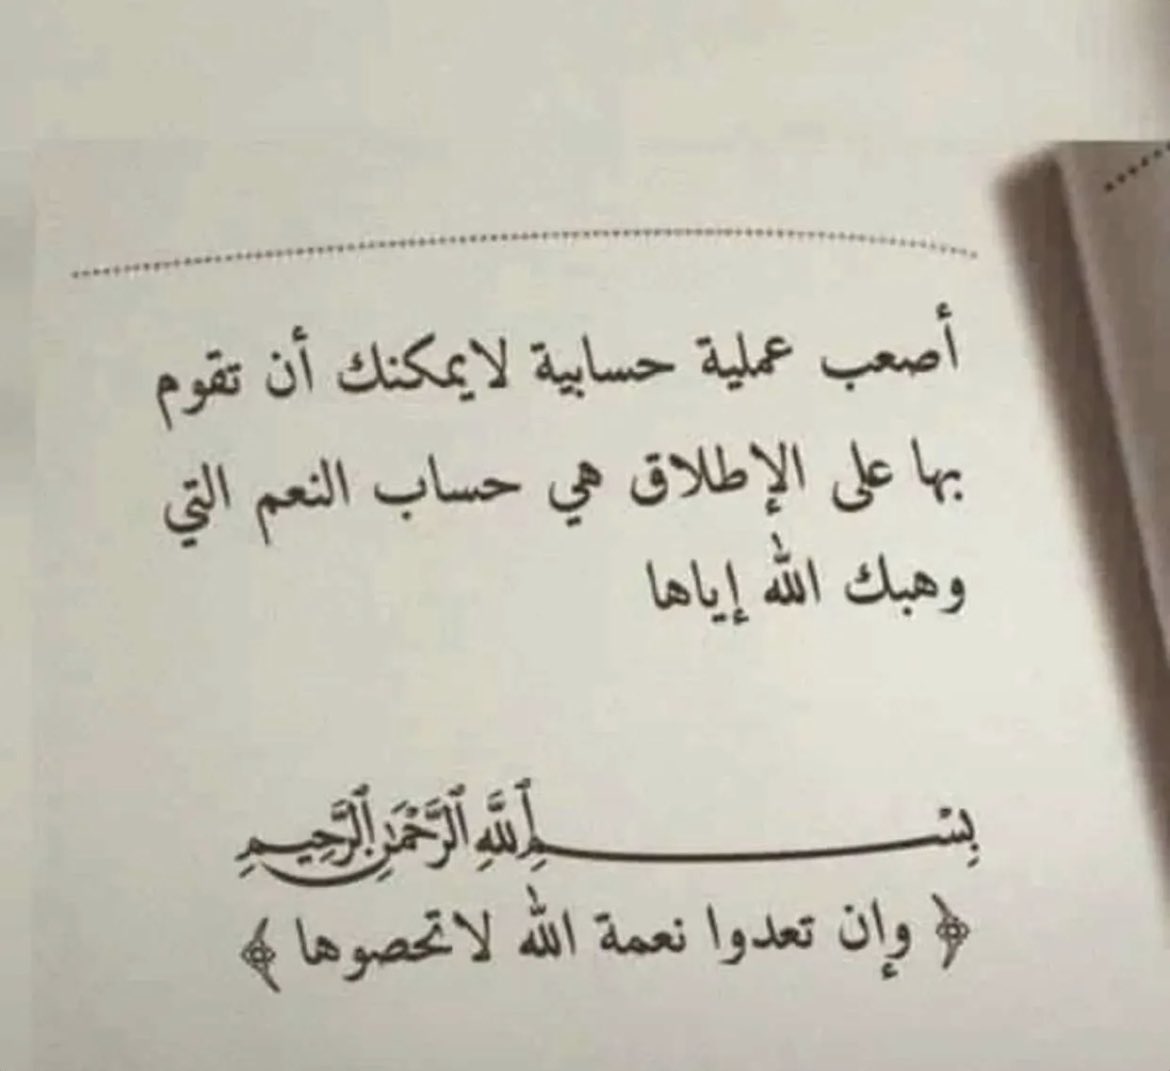 أصعب عملية حسابية لايمكنك أن تقوم
بها على الإطلاق هي حساب النعم التي
وهبك الله إياها
بِسْمِ ٱللَّهِ ٱلرَّحْمَٰنِ ٱلرَّحِيمِ
﴿ وإن تعدوا نعمة الله لاتحصوها ﴾